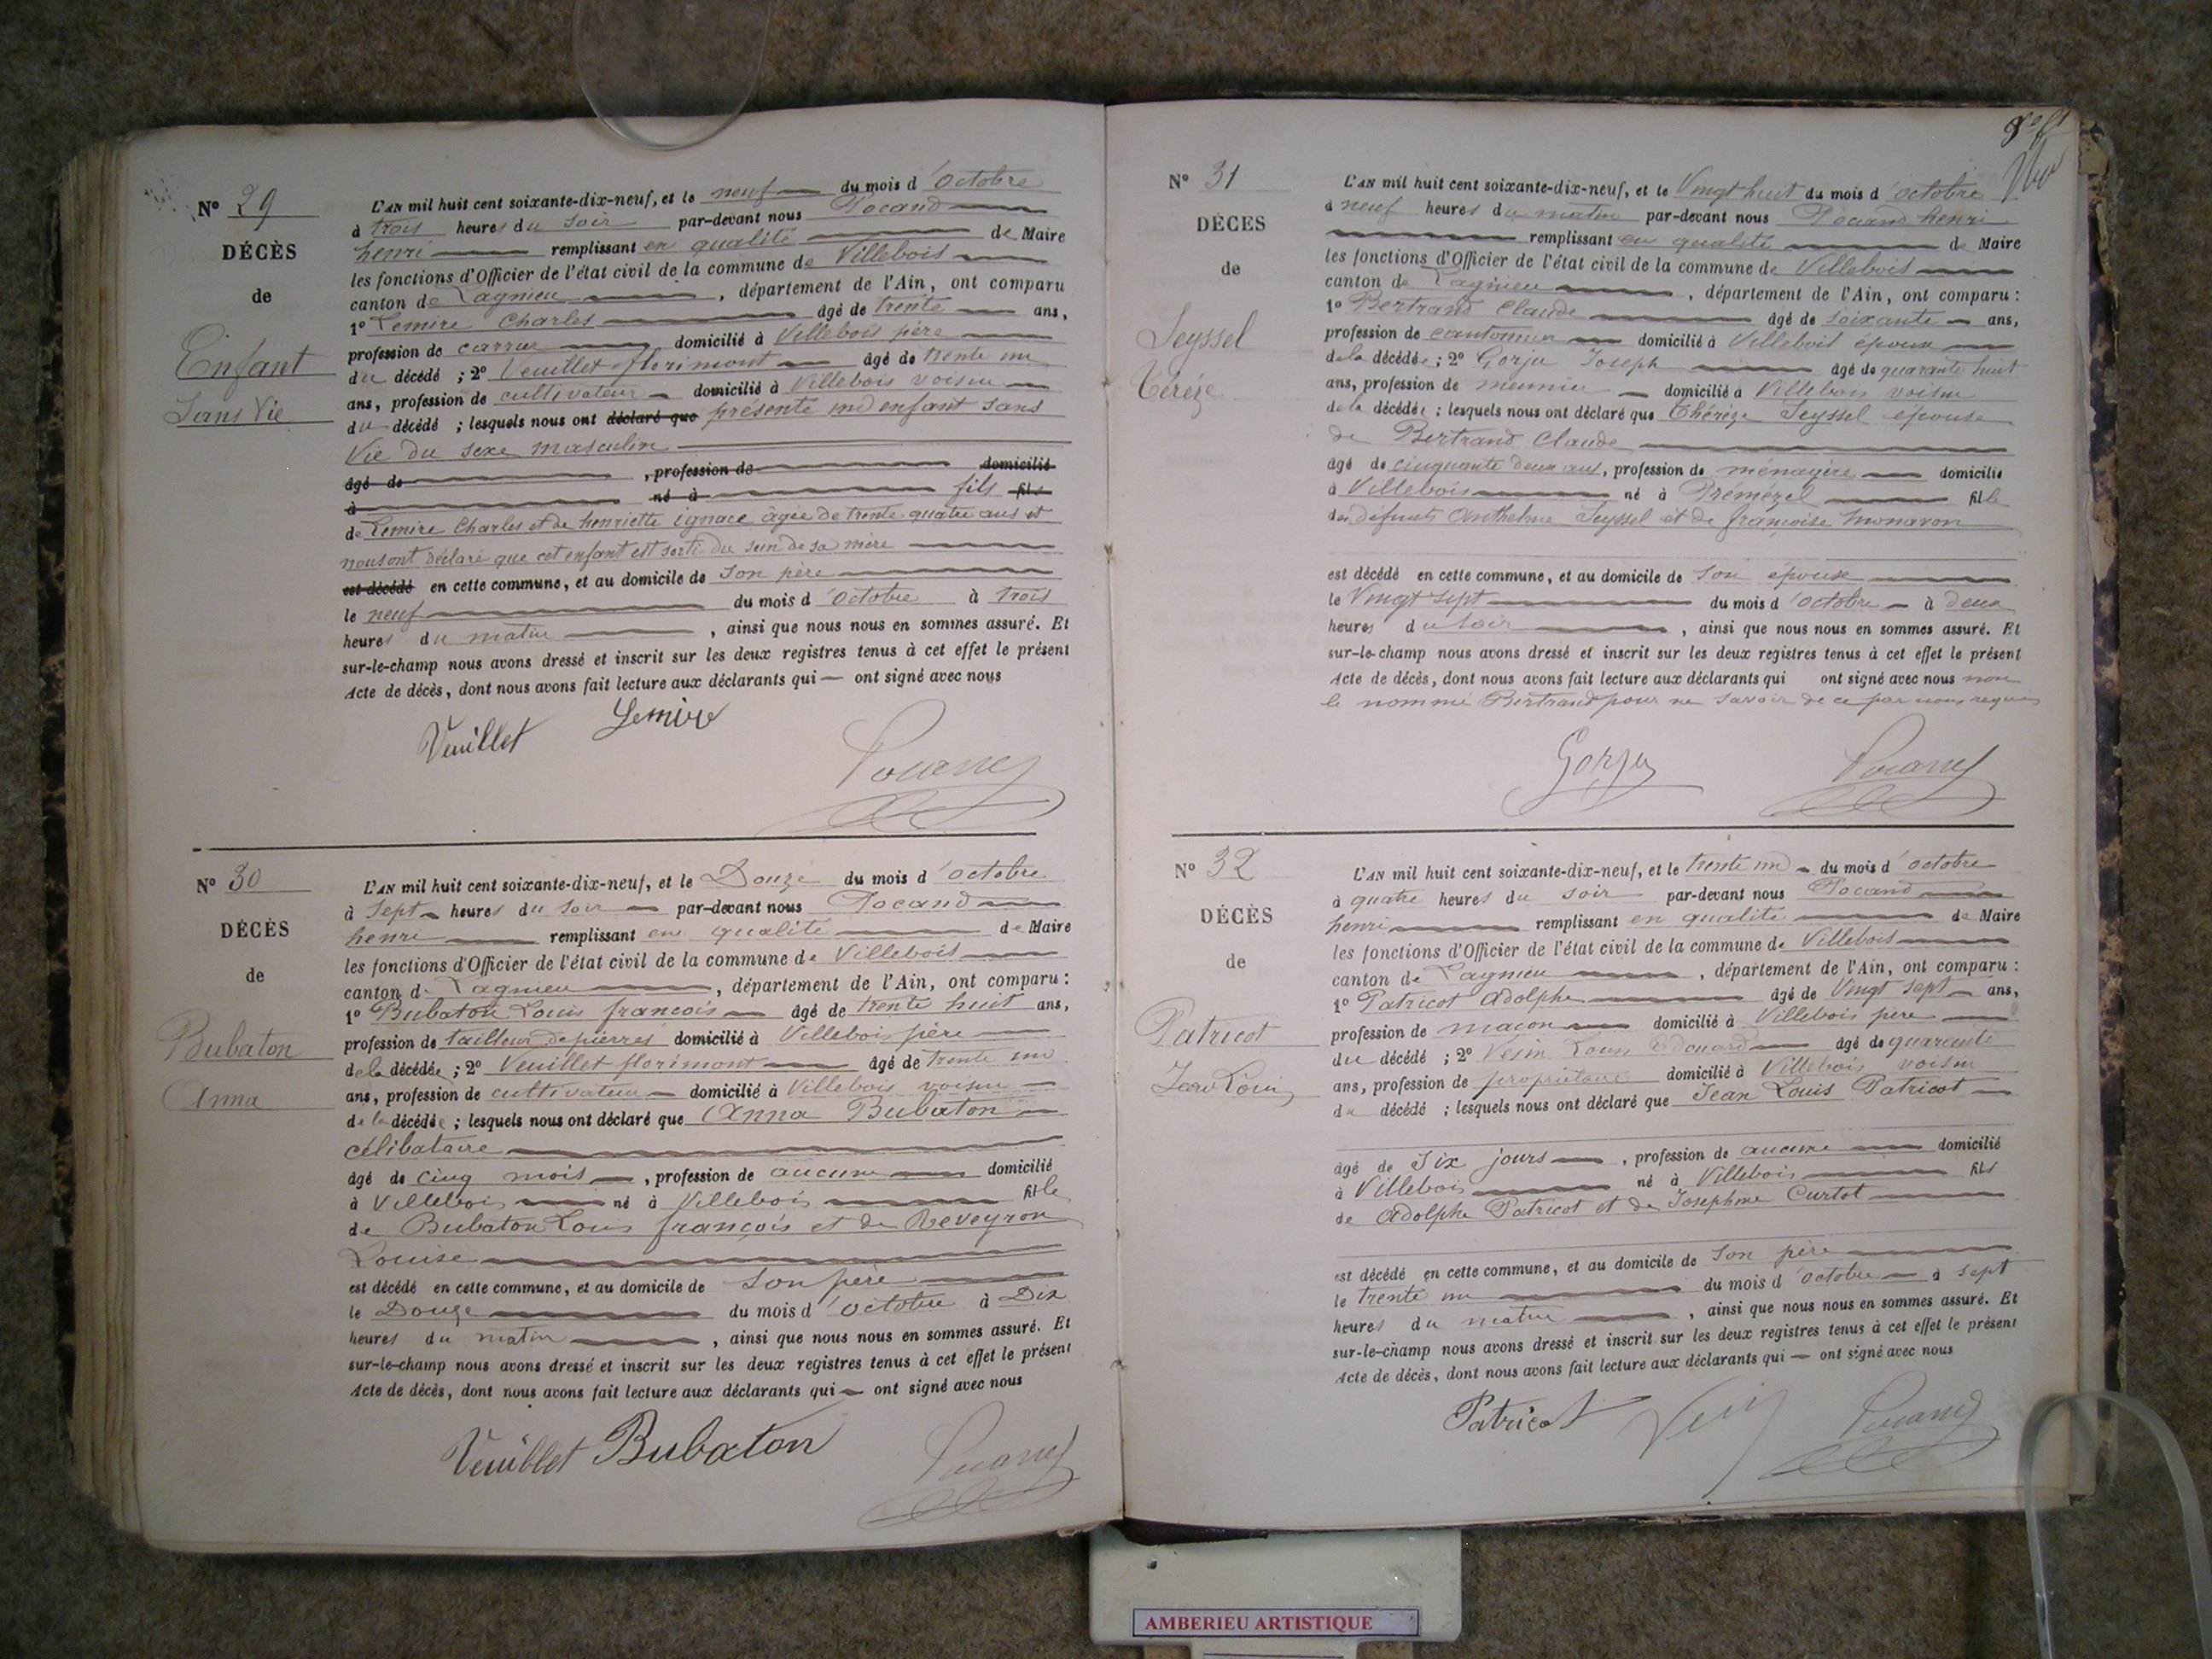 N° 29
DÉCÈS
de
Enfant
Sans Vie
L'AN mil huit cent soixante-dix-neuf, et le neuf du mois d'octobre
à trois heures du soir par-devant nous Pocand
henri remplissant en qualité de Maire
les fonctions d'Officier de l'état civil de la commune de Villebois
canton de Lagnieu, département de l'Ain, ont comparu
1° Lemire Charles âgé de trente ans,
profession de carrier domicilié à Villebois père
du décédé ; 2° Veuillet florimont âgé de trente un
ans, profession de cultivateur domicilié à Villebois voisin
du décédé ; lesquels nous ont déclaré que présenté un enfant sans
Vie du sexe masculin
âgé de , profession de domicilié
à né à fils fils
de Lemire Charles et de henriette ignace âgée de trente quatre ans et
nous ont déclaré que cet enfant est sorti du sein de sa mère
est décédé en cette commune, et au domicile de son père
le neuf du mois d'octobre à trois
heures du matin , ainsi que nous nous en sommes assuré. Et
sur-le-champ nous avons dressé et inscrit sur les deux registres tenus à cet effet le présent
Acte de décès, dont nous avons fait lecture aux déclarants qui ont signé avec nous
Veuillet Lemire
Pocand
N° 30
DÉCÈS
de
Bubaton
Anna
L'AN mil huit cent soixante-dix-neuf, et le Douze du mois d'octobre
à sept heures du soir par-devant nous Pocand
henri remplissant en qualité de Maire
les fonctions d'Officier de l'état civil de la commune de Villebois
canton de Lagnieu, département de l'Ain, ont comparu :
1° Bubaton Louis francois âgé de trente huit ans,
profession de tailleur de pierres domicilié à Villebois père
de la décédée ; 2° Veuillet florimont âgé de trente un
ans, profession de cultivateur domicilié à Villebois voisin
de la décédée ; lesquels nous ont déclaré que Anna Bubaton
célibataire
âgé de cinq mois, profession de aucune domicilié
à Villebois né à Villebois fille
de Bubaton Louis françois et de Reveyron
Louise
est décédé en cette commune, et au domicile de son père
le Douze du mois d'octobre à Dix
heures du matin , ainsi que nous nous en sommes assuré. Et
sur-le-champ nous avons dressé et inscrit sur les deux registres tenus à cet effet le présent
Acte de décès, dont nous avons fait lecture aux déclarants qui ont signé avec nous
Veuillet Bubaton Pocand
N° 31
DÉCES
de
Seyssel
Téréze
L'AN mil huit cent soixante-dix-neuf, et le Vingt huit du mois d'octobre
à neuf heures du matin par-devant nous Pocand henri
remplissant en qualité de Maire
les fonctions d'Officier de l'état civil de la commune de Villebois
canton de Lagnieu, département de l'Ain, ont comparu :
1° Bertrand Claude âgé de soixante ans,
profession de cantonnier domicilié à Villebois époux
de la décédée ; 2° Gorju Joseph âgé de quarante huit
ans, profession de meunier domicilié à Villebois voisin
de la décédée ; lesquels nous ont déclaré que Thérèze Seyssel épouse
de Bertrand Claude
âgé de cinquante deux ans, profession de ménagère domicilié
à Villebois né à Prémézel fille
des défunts Anthelme Seyssel et de françoise monavon
est décédé en cette commune, et au domicile de son épouse
le Vingt sept du mois d'octobre à deux
heures du soir , ainsi que nous nous en sommes assuré. Et
sur-le-champ nous avons dressé et inscrit sur les deux registres tenus à cet effet le présent
Acte de décès, dont nous avons fait lecture aux déclarants qui ont signé avec nous non
le nommé Bertrand pour ne savoir de ce par nous requis
Gorju Pocand
N° 32
DÉCÈS
de
Patricot
Jean Louis
L'AN mil huit cent soixante-dix-neuf, et le trente un du mois d'octobre
à quatre heures du soir par-devant nous Pocand
henri remplissant en qualité de Maire
les fonctions d'Officier de l'état civil de la commune de Villebois
canton de Lagnieu, département de l'Ain, ont comparu :
1° Patricot Adolphe âgé de Vingt sept ans,
profession de maçon domicilié à Villebois père
du décédé ; 2° Vesin Louis Edouard âgé de quarante
ans, profession de propriétaire domicilié à Villebois voisin
du décédé ; lesquels nous ont déclaré que Jean Louis Patricot
âgé de Six jours, profession de aucune domicilié
à Villebois né à Villebois fils
de Adolphe Patricot et de Josephine Curtot
est décédé en cette commune, et au domicile de son père
le trente un du mois d'octobre à sept
heures du matin , ainsi que nous nous en sommes assuré. Et
sur-le-champ nous avons dressé et inscrit sur les deux registres tenus à cet effet le présent
Acte de décès, dont nous avons fait lecture aux déclarants qui ont signé avec nous
Patricot Pocand
AMBERIEU ARTISTIQUE